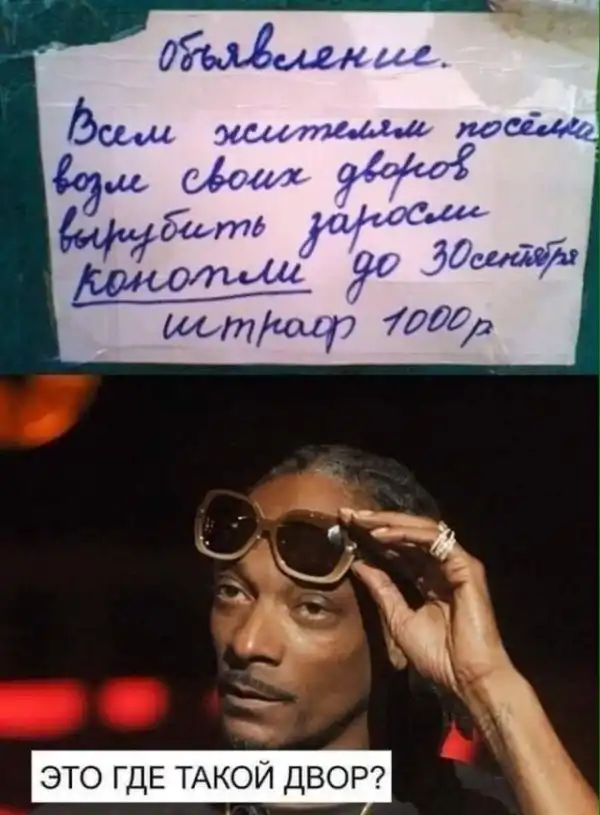 Объявление.
Всем жителям посёлка
возле своих дворов
вырубить заросли
конопли до 30 сентября
штраф 1000 р
ЭТО ГДЕ ТАКОЙ ДВОР?